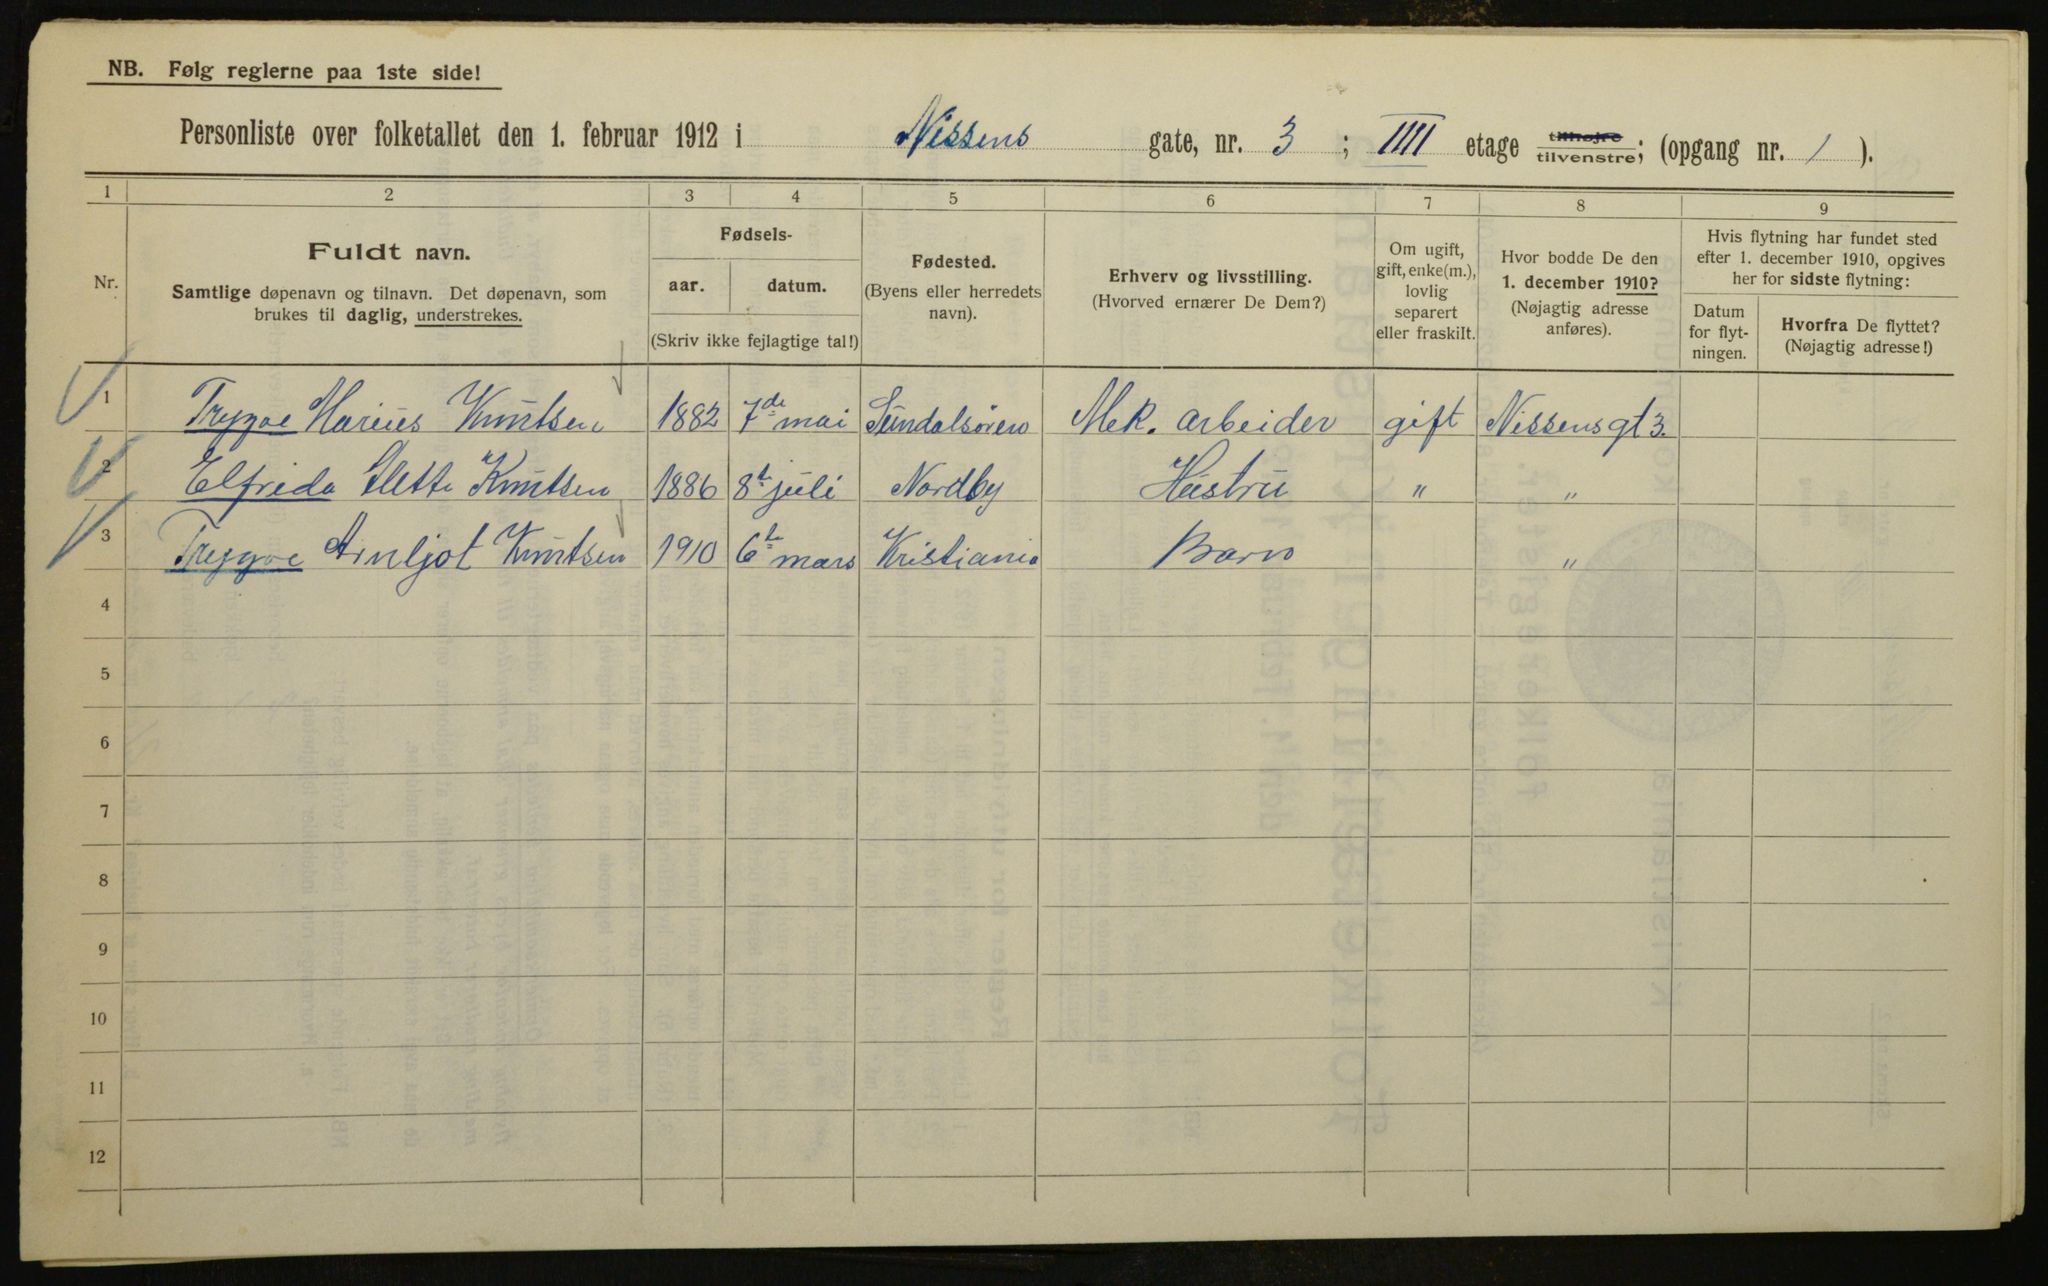 NB. Følg reglerne paa 1ste side!
Personliste over folketallet den 1. februar 1912 i Nissens gate, nr. 3; IIII etage tilhøjre tilvenstre; (opgang nr. 1).
1 2 3 4 5 6 7 8 9
Nr.
Fuldt navn.
Samtlige døpenavn og tilnavn. Det døpenavn, som
brukes til daglig, understrekes.
Fødsels-
aar. datum.
(Skriv ikke fejlagtige tal!)
Fødested.
(Byens eller herredets
navn).
Erhverv og livsstilling.
(Hvorved ernærer De Dem?)
Om ugift,
gift, enke(m.),
lovlig
separert
eller fraskilt.
Hvor bodde De den
1. december 1910?
(Nøjagtig adresse
anføres).
Hvis flytning har fundet sted
efter 1. december 1910, opgives
her for sidste flytning:
Datum
for flyt-
ningen.
Hvorfra De flyttet?
(Nøjagtig adresse!)
1 Trygve Marius Knutsen 1882 7de mai Sundalsøren Mek. arbeider gift Nissensgt 3.
2 Elfrida Knutsen 1886 8de juli Nordby Hustru " "
3 Trygve Arnljot Knutsen 1910 6te mars Kristiania Barn "
4
5
6
7
8
9
10
11
12